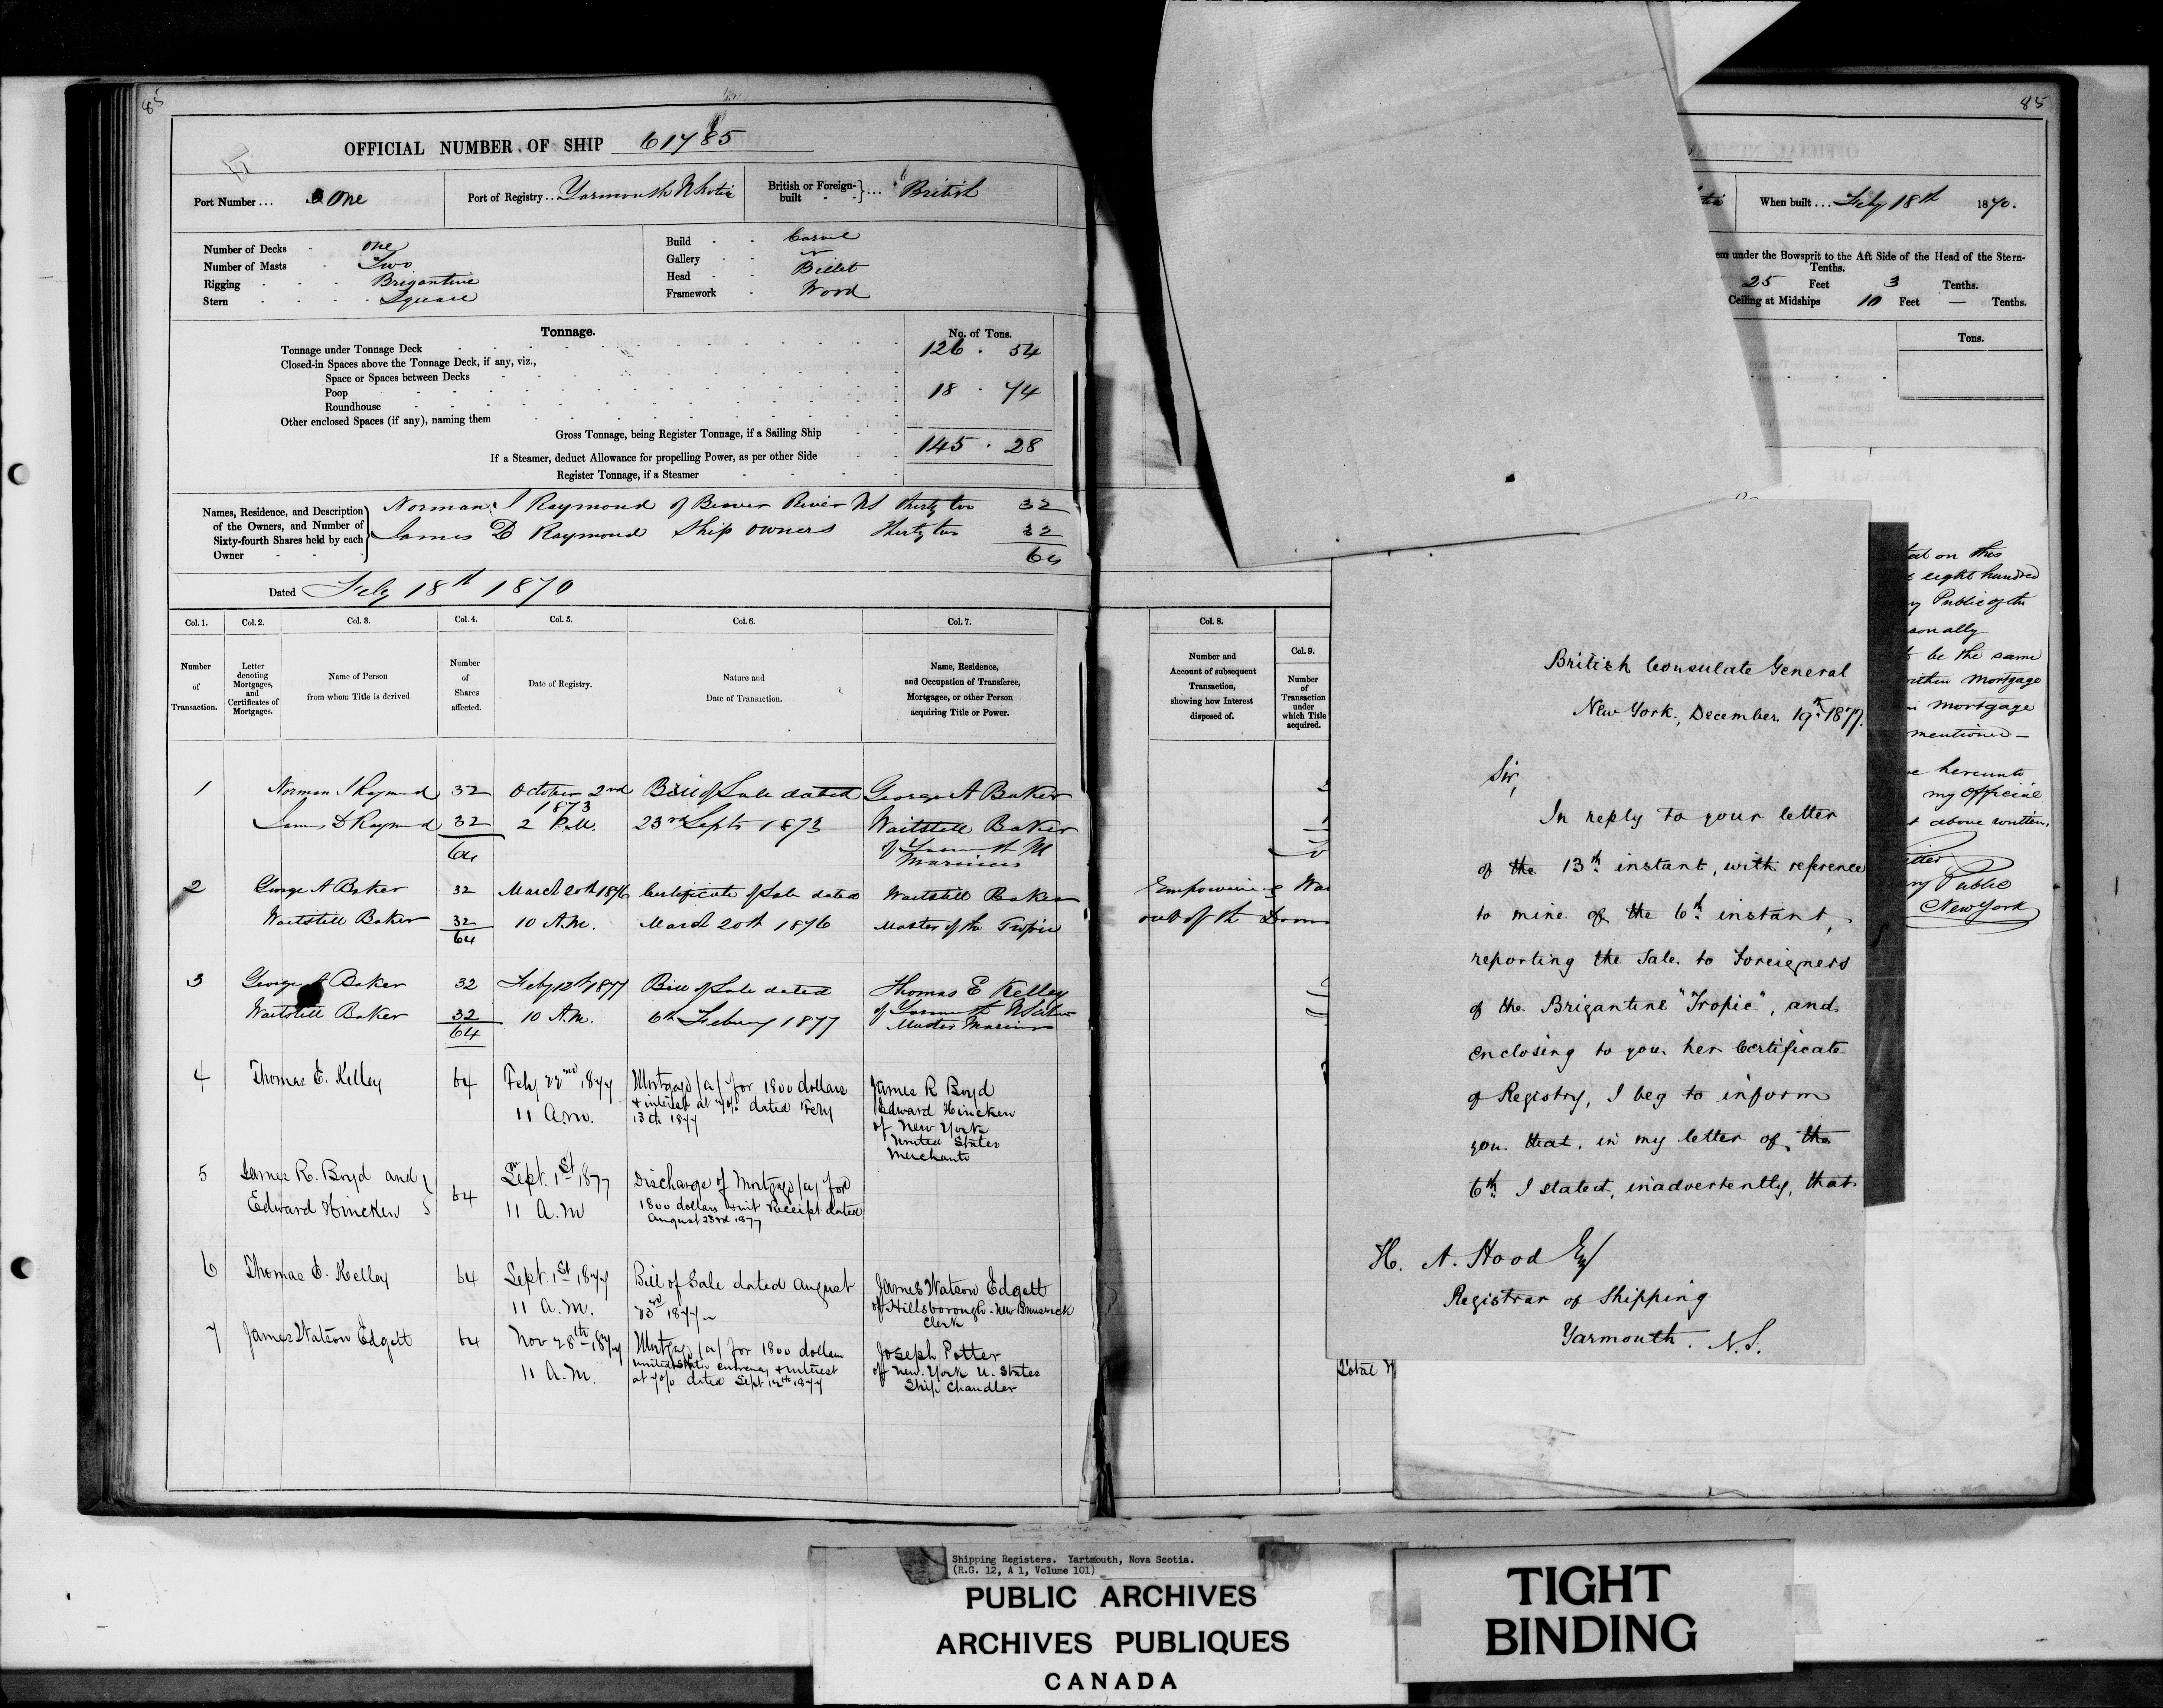 85
OFFICIAL NUMBER OF SHIP 61785
Port Number... One
Port of Registry.. Yarmouth N Scotia
British or Foreign-built }... British
Number of Decks - one
Number of Masts - Two
Rigging - - - Brigantine
Stern - - - - Square
Build - - Carvel
Gallery - -
Head - - Billet
Framework - Wood
Tonnage.
No. of Tons.
Tonnage under Tonnage Deck 126 . 54
Closed-in Spaces above the Tonnage Deck, if any, viz.,
Space or Spaces between Decks
Poop 18 . 74
Roundhouse
Other enclosed Spaces (if any), naming them
Gross Tonnage, being Register Tonnage, if a Sailing Ship 145 . 28
If a Steamer, deduct Allowance for propelling Power, as per other Side
Register Tonnage, if a Steamer
Names, Residence, and Description of the Owners, and Number of Sixty-fourth Shares held by each Owner
Norman J Raymond of Beaver River NS thirty two 32
James D Raymond Ship owners Thirty two 32
64
Dated Feby 18th 1870
Col. 1. Col. 2. Col. 3. Col. 4. Col. 5. Col. 6. Col. 7.
Number of Transaction.
Letter denoting Mortgages, and Certificates of Mortgages.
Name of Person from whom Title is derived.
Number of Shares affected.
Date of Registry.
Nature and Date of Transaction.
Name, Residence, and Occupation of Transferee, Mortgagee, or other Person acquiring Title or Power.
1 Norman J Raymond 32 October 2nd Bill of Sale dated George A Baker
James D Raymond 32 1873 2 P.M. 23rd Sept 1873 Waitstill Baker
64 of Yarmouth NS
Mariners
2 George A Baker 32 March 20th 1876 Certificate of Sale dated Waitstill Baker
Waitstill Baker 32 10 A.M. March 20th 1876 Master of the Tropic
64
3 George A Baker 32 Feby 12th 1877 Bill of Sale dated Thomas E Kelley
Waitstill Baker 32 10 A.M. 6th Febuary 1877 of Yarmouth N Scotia
64 Master Mariner
4 Thomas E. Kelley 64 Feby 22nd 1877 Mortgage (a) for 1800 dollars James R Boyd
11 a.m. & interest at 7% dated Feby Edward Hincken
13th 1877 of New York
United States
Merchants
5 James R. Boyd and 64 Sept. 1st 1877 Discharge of Mortgage (a) for
Edward Hincken 11 A.M 1800 dollars & int Receipt dated
August 23rd 1877
6 Thomas E. Kelley 64 Sept. 1st 1877 Bill of Sale dated August James Watson Edgett
11 a.m. 23rd 1877 of Hillsborough New Brunswick
Clerk
7 James Watson Edgett 64 Nov 28th 1877 Mortgage (a) for 1800 dollars Joseph Potter
11 A.M. United States currency & interest of New York U. States
at 7% dated Sept 12th 1877 Ship Chandler
85
When built... Feby 18th 1870.
under the Bowsprit to the Aft Side of the Head of the Stern-
Tenths.
25 Feet 3 Tenths.
Ceiling at Midships 10 Feet — Tenths.
Tons.
Col. 8. Col. 9.
Number and Account of subsequent Transaction, showing how Interest disposed of.
Number of Transaction under which Title acquired.
Empowering
out of the
British Consulate General
New York, December 19th 1877.
Sir,
In reply to your letter
of the 13th instant, with reference
to mine of the 6th instant,
reporting the Sale to Foreigners
of the Brigantine "Tropic", and
enclosing to you her Certificate
of Registry, I beg to inform
you that, in my letter of the
6th I stated, inadvertently, that
H. A. Hood Esq
Registrar of Shipping
Yarmouth. N.S.
on this
eight hundred
Public of the
be the same
within mortgage
mortgage
mentioned —
hereunto
my official
above written.
Public
New York
Total
Shipping Registers. Yartmouth, Nova Scotia.
(R.G. 12, A 1, Volume 101)
PUBLIC ARCHIVES
ARCHIVES PUBLIQUES
CANADA
TIGHT
BINDING